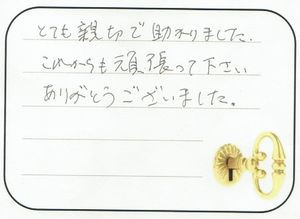 とても親切で助わりました.
これからも頑張って下さい
ありがとうございました。